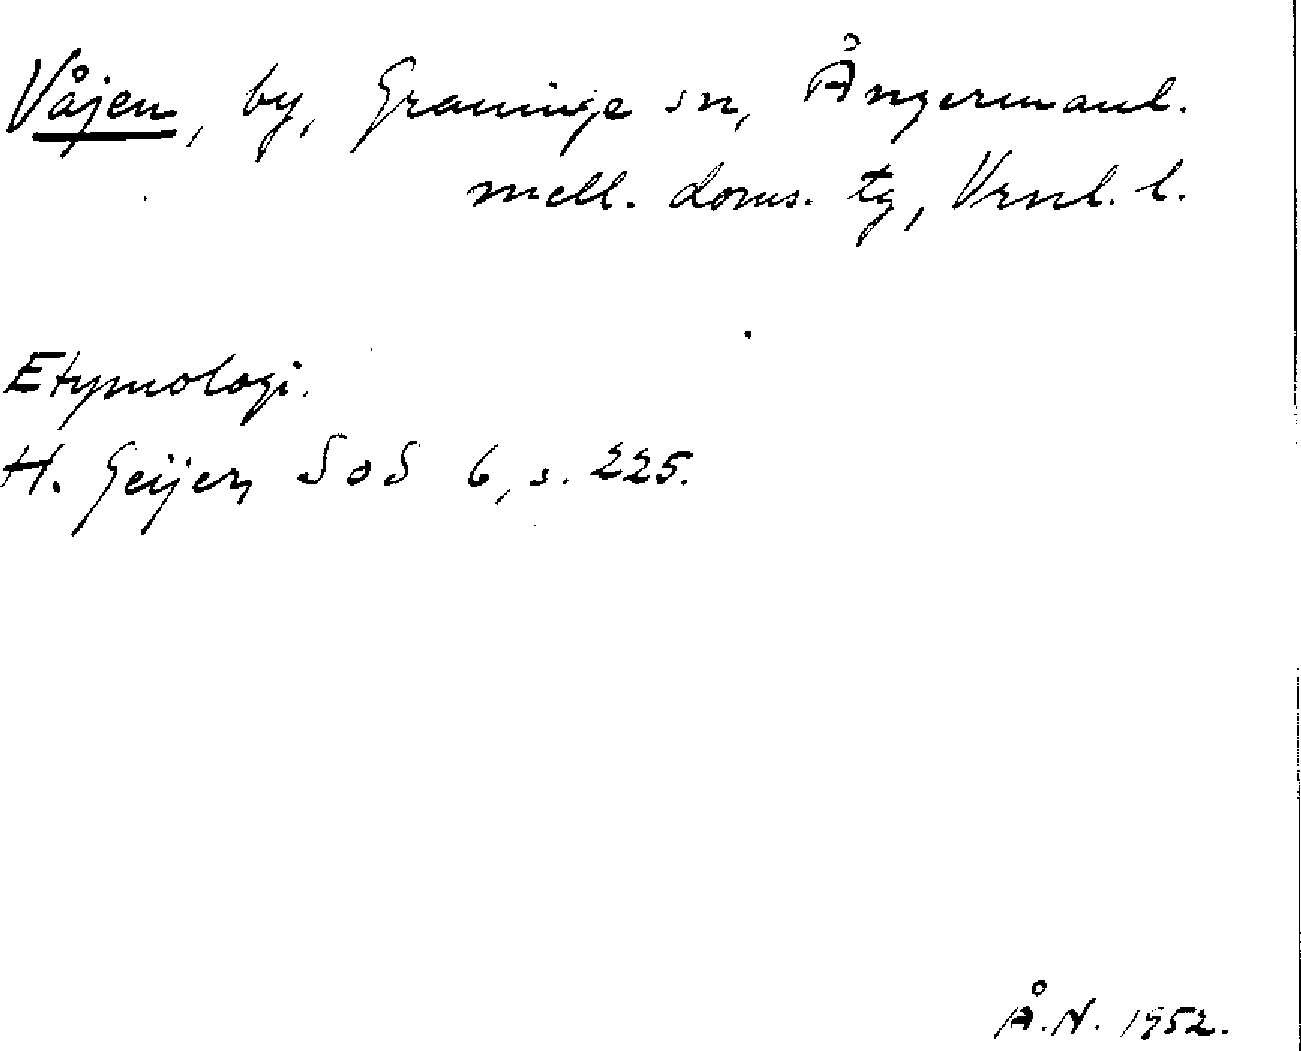 Våjen, by, Graninge sn, Ångermanl.
mell. doms. tg, Vrnl. l.
Etymologi.
H. Geijer, SoS 6, s. 225.
Å.N. 1952.